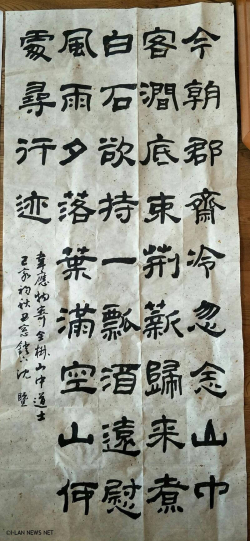 今朝郡齋冷忽念山中
客澗底束荆薪歸来煮
白石欲持一瓢酒遠慰
風雨夕落葉滿空山何
處尋行迹
韋應物寄全椒山中道士
己亥初秋
CHLAN NEWS NET